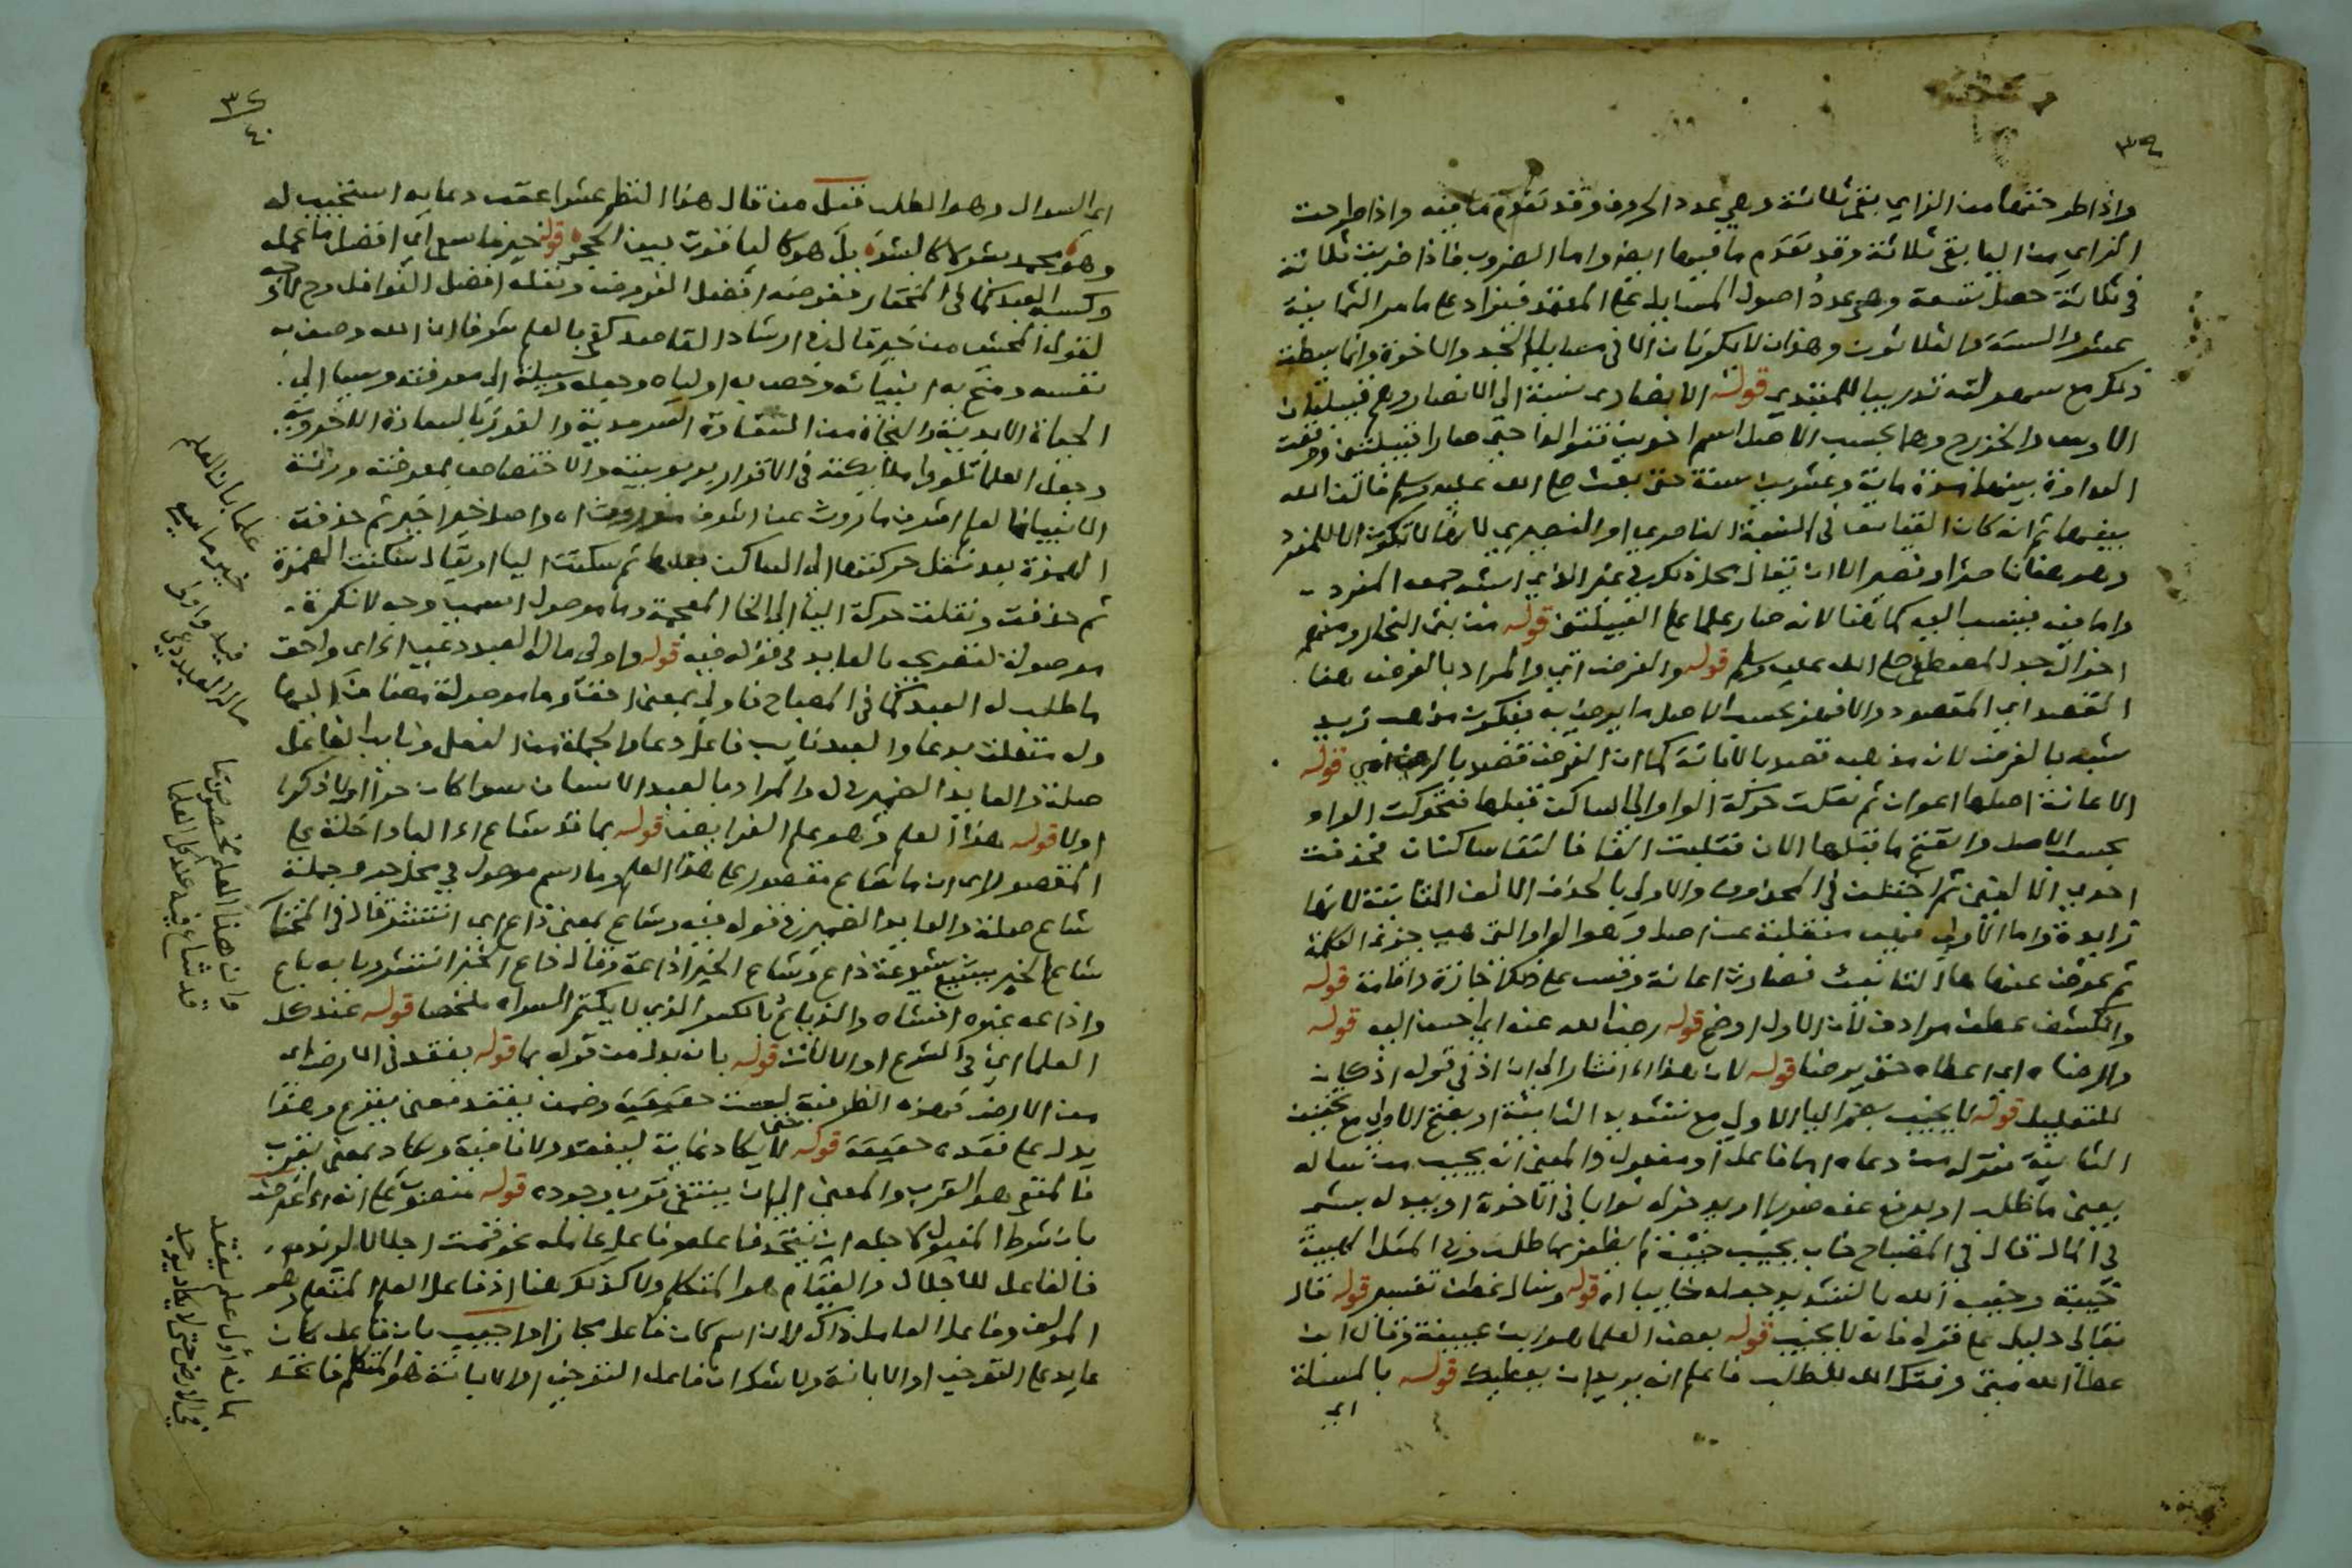 ٣٩
واذا طرحتها من الزاي بقي ثلاثة وهي عدد الحروف وقد تقدم ما فيه واذا طرحت
الزاي من اليا بقي ثلاثة وقد تقدم ما فيها ايضا واما الضروب فاذا ضربت ثلاثة
في ثلاثة حصل تسعة وهي عدد اصول المسايل على المعتمد فيزاد على ما مر الثمانية
عشر والستة والثلاثون وهذان لا يكونان الا في مسايل الجد والاخوة وانما بسطت
ذلك مع سهولته تدريبا للمبتدي قوله الانصاري نسبة الى الانصار وهم قبيلتان
الاوس والخزرج وهما بحسب الاصل اسم اخوين توالدا حتى صارا قبيلتين وقعت
العداوة بينهما مدة ماية وعشرين سنة حتى بعث صلى الله عليه وسلم فالف الله
بينهما ثم انه كان القياس في النسبة الناصري او النصيري لانها لا تكون الا للمفرد
وهو هنا ناصر او نصير الا ان يقال محل ذلك في غير الذي اشبه جمعه المفرد
واما فيه فينسب اليه كما هنا لانه صار علما على القبيلتين قوله من بني النجار ومنهم
اخوال جد المصطفى صلى الله عليه وسلم قوله والغرض اتي والمراد بالغرض هنا
القصد اي المقصود والا فهو بحسب الاصل ما يرمى به فيكون مذهب زيد
شبه بالغرض لان مذهبه قصد بالابانة كما ان الغرض قصد بالرمي قوله
الاعانة اصلها اعوان ثم نقلت حركة الواو الى الساكن قبلها فتحركت الواو
بحسب الاصل وانفتح ما قبلها الان فقلبت الفا فالتقا ساكنان فحذفت
احدى الالفين ثم اختلف في المحذوف والاولى بالحذف الالف الثانية لانها
زايدة واما الاولى فهي منقلبة عن اصل وهو الواو التي هي جزء الكلمة
ثم عوض عنها ها التانيث فصارت اعانة وقس على ذلك اجازة واقامة قوله
والكشف عطف مرادف لان الاول اوضح قوله رضي الله عنه اي احسن اليه قوله
وارضاه اي اعطاه حتى يرضا قوله لان هذا اشار الى ان اذ في قوله اذ كان
للتعليل قوله لا يخيب بضم اليا الاولى مع تشديد الثانية او بفتح الاولى مع تخفيف
الثانية فقوله من دعاه اما فاعل او مفعول والمعنى انه يجيب من ساله
بعين ما طلب او يدفع عنه ضررا او يدخر له ثوابا في الاخرة او يبدله بشر
في الحال قال في المصباح خاب يخيب خيبة لم يظفر بما طلب وفي المثل الهيبة
خيبة وخيبه الله بالتشديد جعله خايبا اه قوله وسال عطف تفسير قوله قال
تعالى دليل على قوله فانه لا يخيب قوله بعض العلما هو ابن عيينة وقال ابن
عطا الله متى وفقك الله للطلب فاعلم انه يريد ان يعطيك قوله بالمسئلة
اي
٤٠
اي السوال وهو الطلب قيل من قال هذا النظم عشرا عقب دعايه استجيب له
وهو محمد بشر لا كالبشر بل هو كالياقوت بين الحجر قوله خير ما سعى اي افضل ما عمله
وكسبه العبد كما في المختار ففرضه افضل الفروض ونفله افضل النوافل
لقول المحشي من خير قال في ارشاد القاصد كفى بالعلم شرفا ان الله وصف به
نفسه ومنح به انبيائه وخص به اولياه وجعله وسيلة الى معرفته وسببا الى
الحياة الابدية والنجاة من الشقاوة السرمدية والفوز بالسعادة الاخروية
وجعل العلما تلوا ملائكته في الاقرار بربوبيته والاختصاص بمعرفته ورثة
الانبيا فالعلم اشرف ما روث عن اشرف موروث اه واصل خير اخير ثم حذفت
الهمزة بعد نقل حركتها الى الساكن بعدها ثم سكنت اليا او يقال سكنت الهمزة
ثم حذفت ونقلت حركة اليا الى الخا المعجمة وما موصول اسمي وجه لا نكرة
موصوفة لتصريحه بالعايد في قوله فيه قوله واولى ماله العبد دعي اي واحق
ما طلب له العبد كما في المصباح فاولى بمعنى احق وما موصولة مضاف اليها
وله متعلق بدعا والعبد نايب فاعل دعا والجملة من الفعل ونايب الفاعل
صلة والعايد الضمير في له والمراد بالعبد الانسان سوا كان حرا او لا ذكرا
اولا قوله هذا العلم وهو علم الفرايض قوله بما قد شاع اي البا داخلة على
المقصور لا اي ان ما شاع مقصور على هذا العلم وما اسم موصول في محل جر وجملة
شاع صلة والعايد الضمير في قوله فيه وشاع بمعنى ذاع اي انتشر قال في المختار
شاع الخبر يشيع شيوعة ذاع وشاع الخبر اذاعة وقال ذاع الخبر انتشر وبابه باع
واذاعه غيره افشاه والمذياع بالكسر الذي لا يكتم السر اه ملخصا قوله عند كل
العلما اي في الشرع او الالات قوله بانه بدل من قوله بما قوله يفقد في الارض اي
من الارض فهذه الظرفية ليست حقيقية وضمن يفقد معنى ينزع وهذا
يدل على فقده حقيقة قوله حتى لا يكاد غاية ليفقد ولا نافية وكاد بمعنى يقرب
فالمنفي هو القرب والمعنى الى ان ينتفي قرب وجوده قوله منصوب على انه اي اعترض
بان شرط المفعول لاجله ان يتحد فاعله وفاعل عامله نحو قمت اجلالا لزيد
فالفاعل للاجلال والقيام هو المتكلم ولا كذلك هنا اذ فاعل العلم المتعلم وهو
المولف وفاعل العامل ذاك لان اسم كان فاعل مجازا واجيب بان فاعل كان
عايد على التوخي او الابانة ولا شك ان فاعل التوخي او الابانة هو المتكلم فاتحد
علما بان العلم
خير ما سعي
فيه واولى
ماله العبد دعي
وان هذا العلم مخصوص بما
قد شاع فيه عند كل العلما
بانه اول علم يفقد
في الارض حتى لا يكاد يوجد